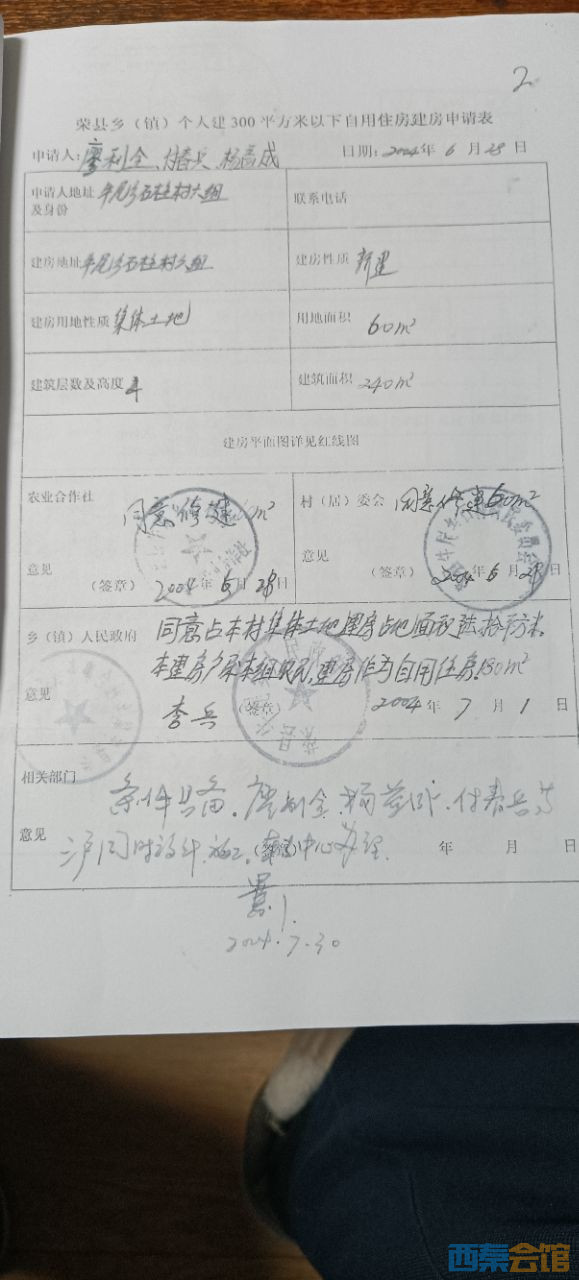 2
荣县乡（镇）个人建300平方米以下自用住房建房申请表
申请人：廖利全、付春兵、杨益成 日期：2004年6月28日
申请人地址及身份 牟尾乡石柱村六组 联系电话
建房地址 牟尾乡石柱村六组 建房性质 新建
建房用地性质 集体土地 用地面积 60m²
建筑层数及高度 4 建筑面积 240m²
建房平面图详见红线图
农业合作社 同意修建 m² 村（居）委会 同意修建60m²
意见 （签章） 2004年6月28日 意见 （签章） 2004年6月28日
乡（镇）人民政府 同意占本村集体土地建房占地面积陆拾平方米。
本建房户系本组农民，建房作为自用住房180m²
意见 李兵 （签章） 2004年7月1日
相关部门 条件具备。廖利全、杨益成、付春兵等
意见 三户同时设计、施工。 中心办理 年 月 日
2004.7.30
西秦会馆